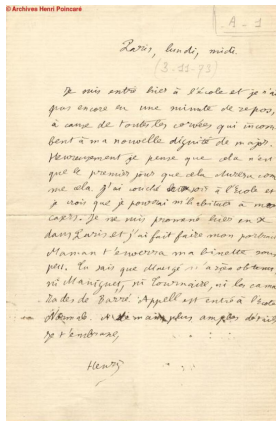 © Archives Henri Poincaré
A-1
Paris, lundi, midi
(3-11-73)
Je suis entré hier à l'école et je n'ai
pas encore eu une minute de repos,
à cause de toutes les corvées qui incom
bent à ma nouvelle dignité de major.
Heureusement je pense que cela n'est
que le premier jour que cela durera com
me cela. J'ai couché ce soir à l'École et
je crois que je pourrai m'habituer à mon
casers. Je me suis promené hier en X
dans Paris et j'ai fait faire mon portrait
Maman t'enverra ma binette sous
peu. Tu sais que Mangé n'a rien obtenu
ni Maniguet, ni Tournaire, ni les cama
rades de Barré. Appell est entré à l'école
Normale. A demain plus amples détails
Je t'embrasse,
Henri